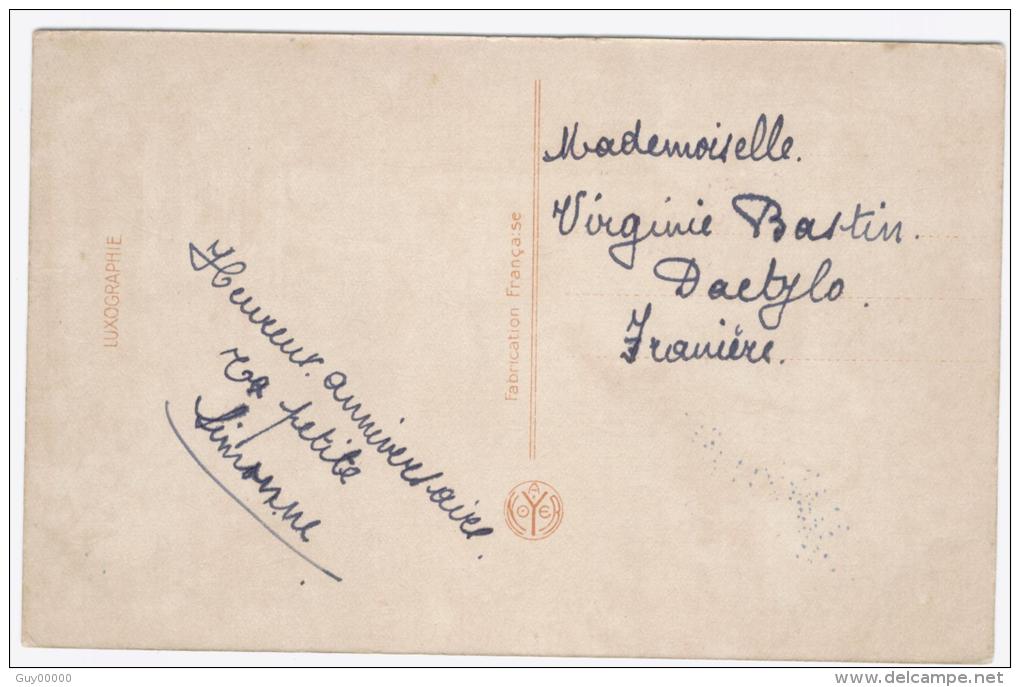 LUXOGRAPHIE
Heureux. anniversaire.
Ta petite
Simonne
Fabrication Française
A. NOYER
Mademoiselle.
Virginie Bastin.
Dactylo.
Franière.
Guy00000
delcampe.net